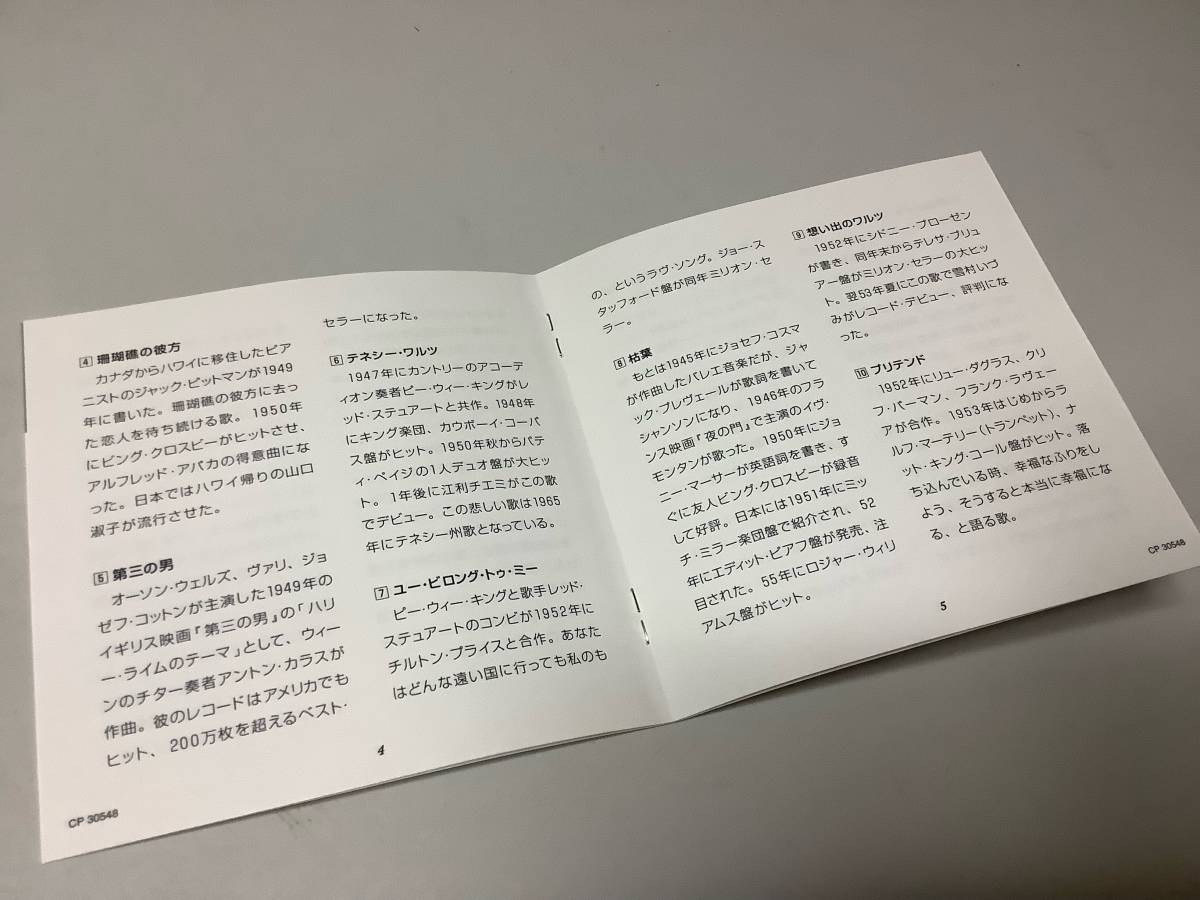 4 珊瑚礁の彼方
カナダからハワイに移住したピア
ニストのジャック・ピットマンが1949
年に書いた。珊瑚礁の彼方に去っ
た恋人を待ち続ける歌。1950年
にビング・クロスビーがヒットさせ、
アルフレッド・アパカの得意曲にな
った。日本ではハワイ帰りの山口
淑子が流行させた。
5 第三の男
オーソン・ウェルズ、ヴァリ、ジョ
ゼフ・コットンが主演した1949年の
イギリス映画『第三の男』の「ハリ
ー・ライムのテーマ」として、ウィー
ンのチター奏者アントン・カラスが
作曲。彼のレコードはアメリカでも
ヒット、200万枚を超えるベスト・
セラーになった。
6 テネシー・ワルツ
1947年にカントリーのアコーデ
ィオン奏者ピー・ウィー・キングがレ
ッド・ステュアートと共作。1948年
にキング楽団、カウボーイ・コーパ
ス盤がヒット。1950年秋からパテ
ィ・ペイジの1人デュオ盤が大ヒッ
ト。1年後に江利チエミがこの歌
でデビュー。この悲しい歌は1965
年にテネシー州歌となっている。
7 ユー・ビロング・トゥ・ミー
ピー・ウィー・キングと歌手レッド・
ステュアートのコンビが1952年に
チルトン・プライスと合作。あなた
はどんな遠い国に行っても私のも
4
CP 30548
の、というラヴ・ソング。ジョー・ス
タッフォード盤が同年ミリオン・セ
ラー。
8 枯葉
もとは1945年にジョセフ・コスマ
が作曲したバレエ音楽だが、ジャ
ック・プレヴェールが歌詞を書いて
シャンソンになり、1946年のフラ
ンス映画『夜の門』で主演のイヴ・
モンタンが歌った。1950年にジョ
ニー・マーサーが英語詞を書き、す
ぐに友人ビング・クロスビーが録音
して好評。日本には1951年にミッ
チ・ミラー楽団盤で紹介され、52
年にエディット・ピアフ盤が発売、注
目された。55年にロジャー・ウィリ
アムス盤がヒット。
9 想い出のワルツ
1952年にシドニー・プローゼン
が書き、同年末からテレサ・ブリュ
アー盤がミリオン・セラーの大ヒッ
ト。翌53年夏にこの歌で雪村いづ
みがレコード・デビュー、評判にな
った。
10 プリテンド
1952年にリュー・ダグラス、クリ
フ・パーマン、フランク・ラヴェー
アが合作。1953年はじめからラ
ルフ・マーテリー(トランペット)、ナ
ット・キング・コール盤がヒット。落
ち込んでいる時、幸福なふりをし
よう、そうすると本当に幸福にな
る、と語る歌。
5
CP 30548